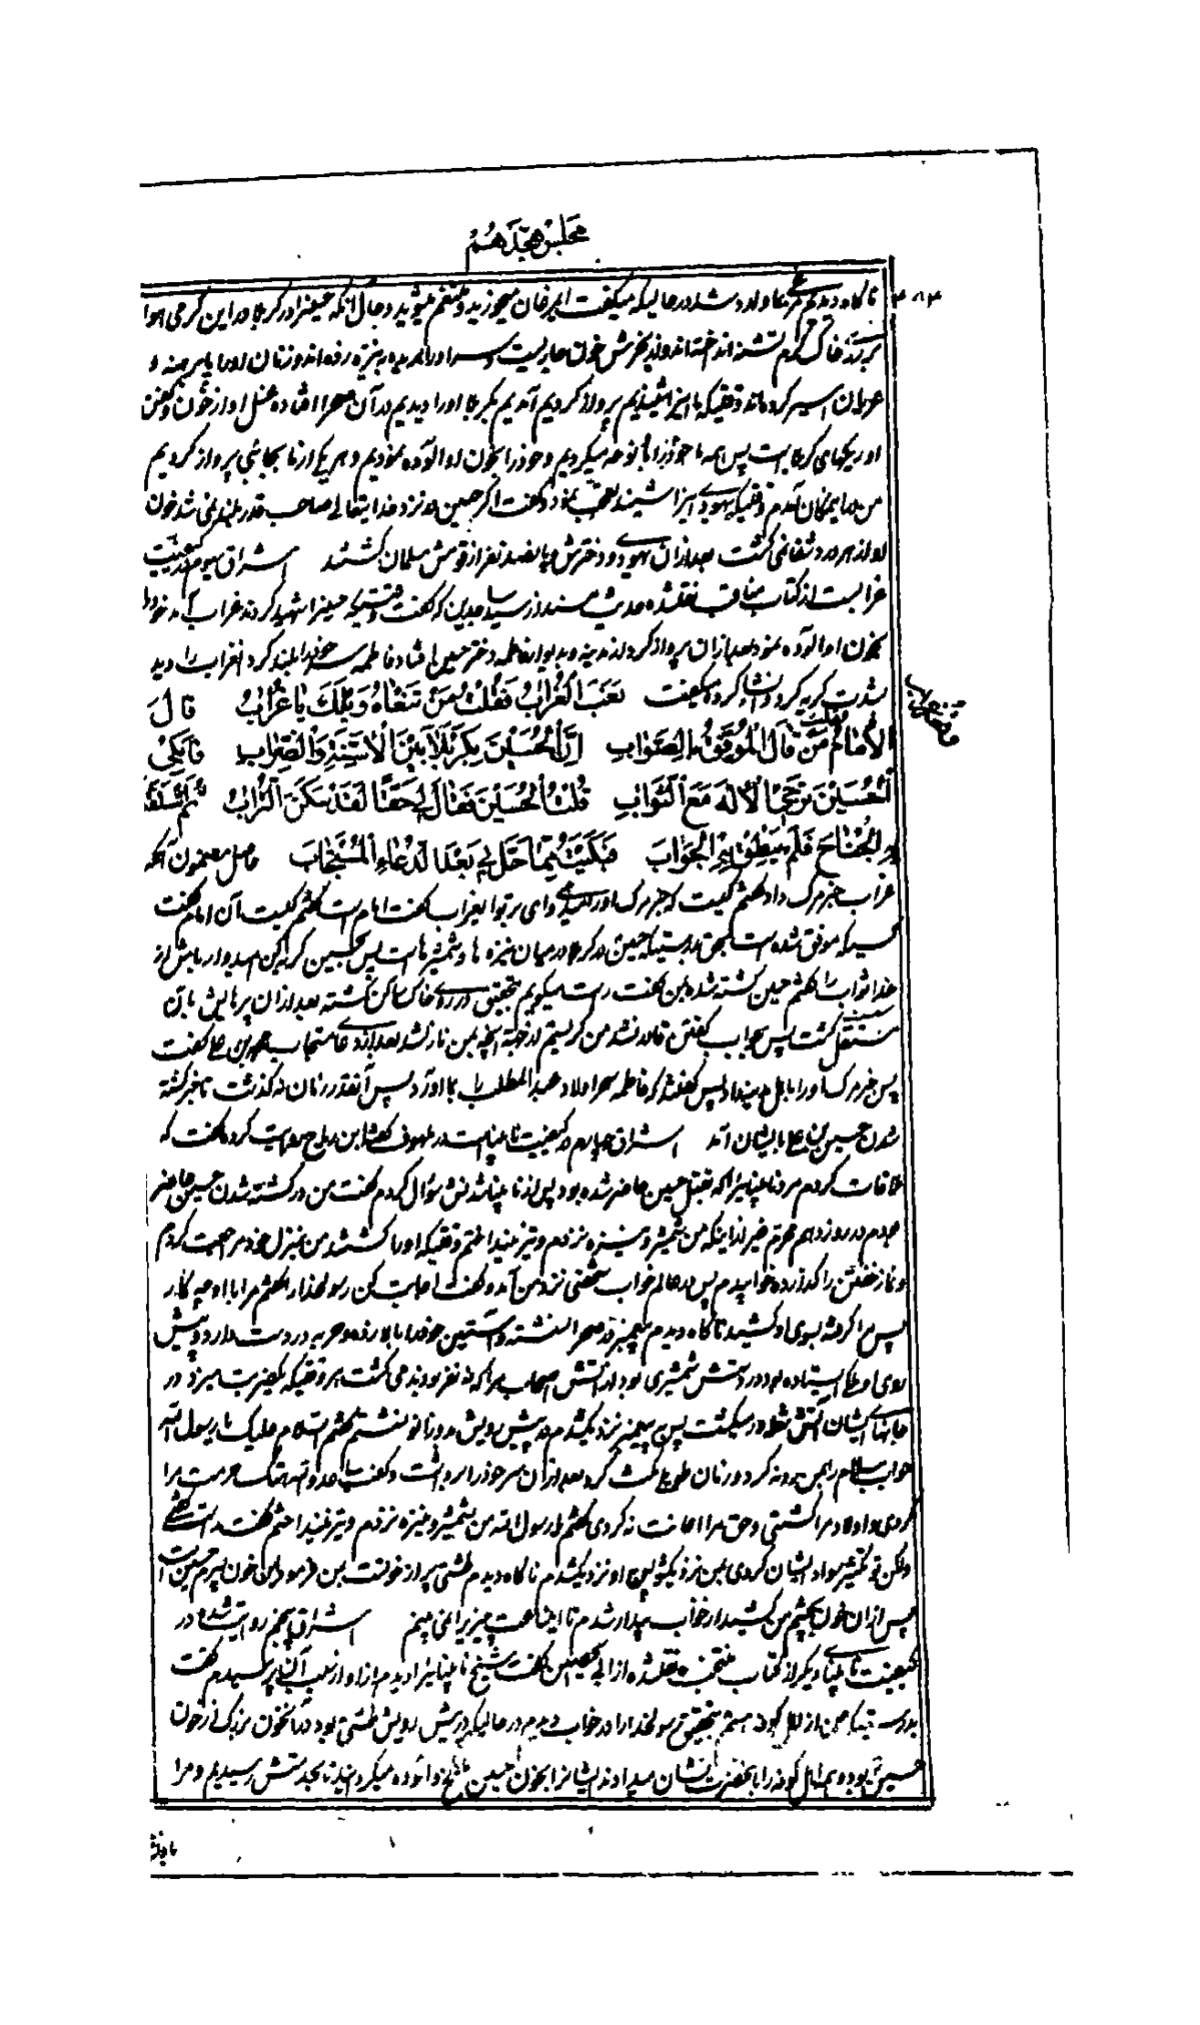 مجلس هجدهم
ناگاه دیدم مرغی وارد شد در حالیکه میگفت ای مرغان میخورید و متنعم میشوید و حال آنکه حسین را در کربلا در این گرمی هوا
بر خاک گرم تشنه انداخته‌اند و از نحرش خون جاریست و سر او را بریده به نیزه زده‌اند و زنان او را پابرهنه و
عریان اسیر کرده‌اند وقتیکه ما این را شنیدیم پرواز کردیم آمدیم بکربلا او را دیدیم در آن صحرا افتاده غسل او از خون و کفن
او ریگهای کربلاست پس همه ما خود را بر او نوحه میکردیم و خود را بخون او آلوده نمودیم و هر یک از ما بجانبی پرواز کردیم
من در اینمکان آمدم وقتیکه یهودی این را شنید تعجب نمود و گفت اگر حسین نزد خدایتعالی صاحب قدر بلند نمی شد خون
او از هر درد شفا نمی گشت بعد از آن یهودی و دخترش و پانصد نفر از قومش مسلمان گشتند اشراق سیوم در کیفیت
غراب است از کتاب مناقب نقل شده حدیث مسند از سید ساجدین که گفت وقتیکه حسین را شهید کردند غراب آمد خود را
بخون او آلوده نمود بعد از آن پرواز کرد از مدینه و بدیوار فاطمه دختر حسین افتاد فاطمه سر خود را بلند کرد غراب را دید
بشدت گریه کرد و انشاء کرده میگفت نَعَبَ الْغُرابُ فَقُلْتُ مَنْ تَنْعاهُ وَیْلَكَ یا غُرابُ قالَ
الْاِمامُ فَقُلْتُ مَنْ قالَ الْمُوَفَّقُ لِلصَّوابِ اِنَّ الْحُسَیْنَ بِکَرْبَلا بَیْنَ الْاَسِنَّةِ وَالضِّرابِ فَابْكِی
الْحُسَیْنَ تَرْجِی الْاِلهَ مَعَ الثَّوابِ قُلْتُ الْحُسَیْنَ فَقالَ لِی حَقًّا لَقَدْ سَكَنَ التُّرابَ ثُمَّ اسْتَقَلَّ
بِهِ الْجَناحُ فَلَمْ یُطِقْ رَدَّ الْجَوابِ فَبَكَیْتُ مِمّا حَلَّ بِی بَعْدَ الدُّعاءِ الْمُسْتَجابِ حاصل مضمون آنکه
غراب خبر مرگ داد گفتم کیست که خبر مرگ او را وای بر تو ای غراب گفت امام است گفتم کیست آن امام گفت
کسیکه موفق شده است بحق بدرستیکه حسین در کربلا در میان نیزه ها و شمشیرهاست پس بحسین گریه کن امیدوار باش از
خدا ثواب را گفتم حسین کشته شده بمن گفت راست میگویم بتحقیق در روی خاک ساکن گشته بعد از آن پرهایش بآن
مستقل گشت پس بجواب گفتن قادر نشد من گریستم از جهة آنچه بمن نازل شد بعد از دعای مستجاب محمد بن علی گفت
پس خبر مرگ او را باهل مدینه داد پس گفتند که فاطمه سحر اولاد عبدالمطلب را بما آورد پس آنقدر زمان نگذشت تا خبر کشته
شدن حسین بن علی بایشان آمد اشراق چهارم در کیفیت نابیناست در لهوف گفته ابن رباح روایت کرده گفت که
ملاقات کردم مرد نابینا را که بقتل حسین حاضر شده بود پس از نابینا شدنش سؤال کردم گفت من در کشته شدن حسین حاضر
بودم در روز دهم محرم غیر از اینکه من شمشیر و نیزه نزدم و تیر نینداختم وقتیکه او را کشتند من بمنزل خود مراجعت کردم
و نماز خفتن را گذارده خوابیدم پس در عالم خواب شخصی نزد من آمد و گفت اجابت کن رسولخدا را گفتم مرا با او چه کار
پس مرا گرفته بسوی او کشید ناگاه دیدم پیغمبر در صحرا نشسته و آستین خود را بالا زده و حربه در دست دارد و پیش
روی او ملکی ایستاده بود در دستش شمشیری بود از آتش اصحاب مرا که نه نفر بودند می کشت هر وقتیکه یکضربت میزد در
جانهای ایشان آتش شعله ور میگشت پس به پیغمبر نزدیکشدم در پیش رویش دو زانو نشستم گفتم السلام علیک یا رسول الله
جواب سلام را بمن رد نکرد و زمان طویل مکث کرد بعد از آن سر خود را برداشت و گفت یا عدو الله هتک حرمت مرا
کردی و اولاد مرا کشتی و حق مرا رعایت نه کردی گفتم یا رسول الله من شمشیر و نیزه نزدم و تیر نینداختم گفت راست گفتی
ولکن تو تکثیر سواد ایشان کردی بمن نزدیکشو پس او نزدیکشدم ناگاه دیدم طشتی پر از خونست بمن فرمود این خون پسرم حسین است
پس از آن خون بچشم من کشید از خواب بیدار شدم تا این ساعت چیزیرا نمی بینم اشراق پنجم روایت شده در
کیفیت نابینای دیگر از کتاب منتخب نقلشده از ابی الحصین گفت شیخ نابینا را دیدم از او از سبب آن پرسیدم گفت
بدرستیکه من از اهل کوفه هستم بتحقیق رسولخدا را در خواب دیدم در حالیکه در پیش رویش طشتی بود در آن خون بزرگ از خون
حسین بود و همه اهل کوفه را بآنحضرت نشان میدادند ایشانرا بخون حسین آلوده میکرد تا بخدمتش رسیدم و مرا